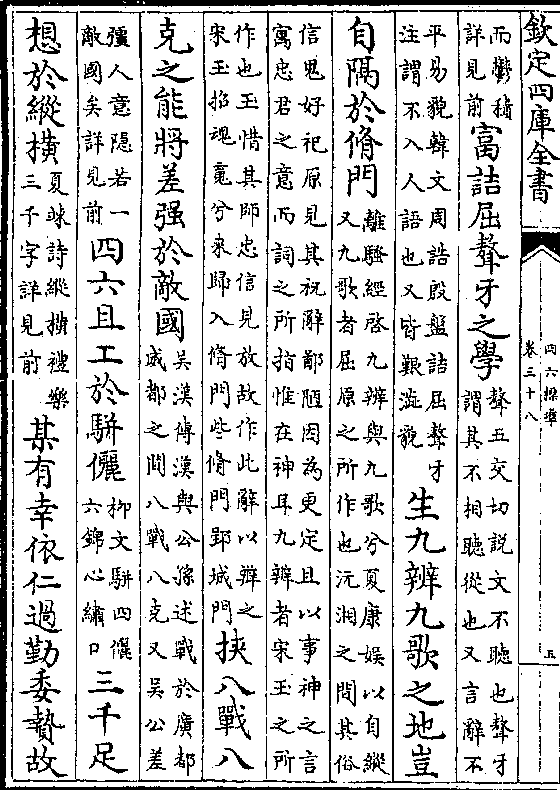 欽定四庫全書
四六標準
卷三十八
五
而鬱積詳見前富詰屈聱牙之學聱五交切說文不聽也聱牙謂其不相聽從也又言辭不
平易貌韓文周誥殷盤詰屈聱牙注謂不入人語也又皆艱澁貌生九辨九歌之地豈
自隔於脩門離騷經啓九辨與九歌兮夏康娛以自縱又九歌者屈原之所作也沅湘之間其俗
信鬼好祀原見其祝辭鄙陋因為更定且以事神之言寓忠君之意而詞之所指惟在神耳九辨者宋玉之所
作也玉惜其師忠信見放故作此辭以辨之宋玉招魂䰟兮來歸入脩門些脩門郢城門挾八戰八
克之能將差强於敵國吳漢傳漢與公孫述戰於廣都成都之間八戰八克又吳公差
彊人意隱若一敵國矣詳見前四六且工於駢儷柳文駢四儷六錦心繡口三千足
想於縱橫夏竦詩縱橫禮樂三千字詳見前某有幸依仁過勤委贄故